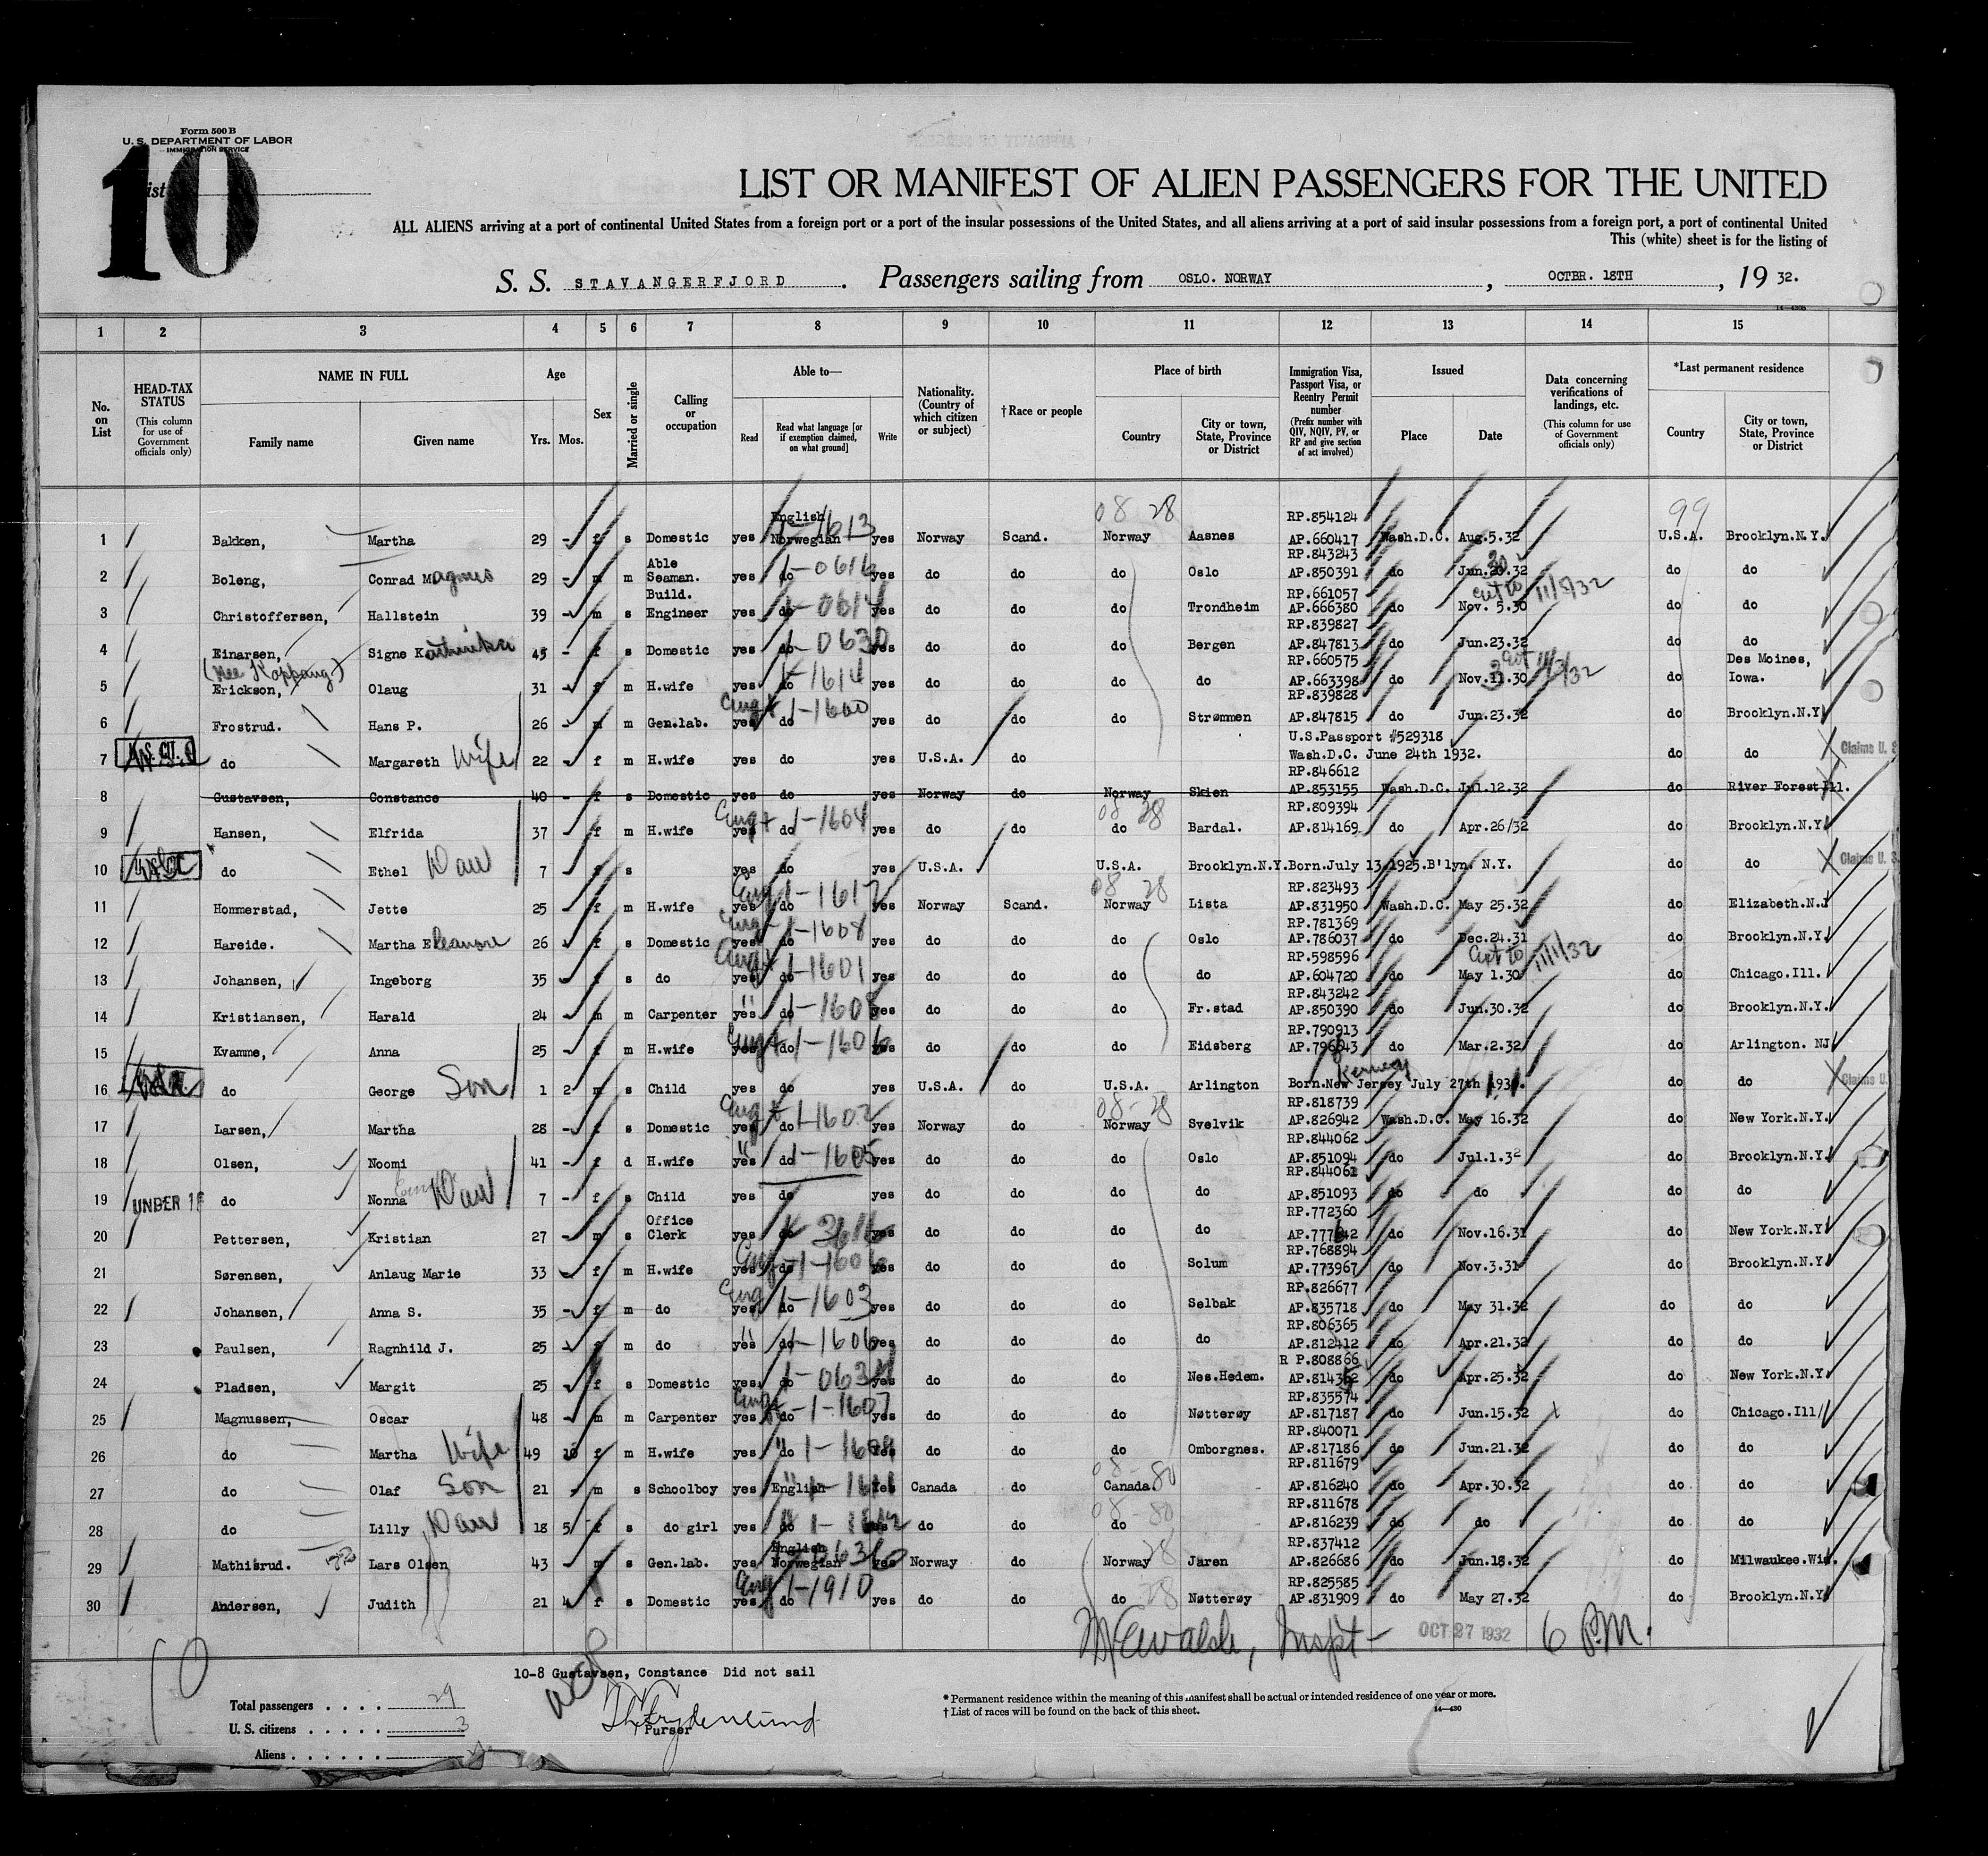 Form 500 B
U. S. DEPARTMENT OF LABOR
IMMIGRATION SERVICE
List 10
LIST OR MANIFEST OF ALIEN PASSENGERS FOR THE UNITED
ALL ALIENS arriving at a port of continental United States from a foreign port or a port of the insular possessions of the United States, and all aliens arriving at a port of said insular possessions from a foreign port, a port of continental United
This (white) sheet is for the listing of
S. S. STAVANGERFJORD. Passengers sailing from OSLO. NORWAY, OCTBR. 18TH, 19 32.
1 2 3 4 5 6 7 8 9 10 11 12 13 14 15
No. on List
HEAD-TAX STATUS
(This column for use of Government officials only)
NAME IN FULL
Family name
Given name
Age
Yrs. Mos.
Sex
Married or single
Calling or occupation
Able to—
Read
Read what language [or if exemption claimed, on what ground]
Write
Nationality. (Country of which citizen or subject)
†Race or people
Place of birth
Country
City or town, State, Province or District
Immigration Visa, Passport Visa, or Reentry Permit number
(Prefix number with QIV, NQIV, PV, or RP and give section of act involved)
Issued
Place
Date
Data concerning verifications of landings, etc.
(This column for use of Government officials only)
*Last permanent residence
Country
City or town, State, Province or District
08 28 99
1 Bakken, Martha 29 - f s Domestic yes English Norwegian 1-1613 yes Norway Scand. Norway Aasnes RP.854124 AP.660417 Wash.D.C. Aug.5.32 U.S.A. Brooklyn.N.Y.
2 Boleng, Conrad Magnus 29 - m m Able Seaman. yes do 1-0616 yes do do do Oslo RP.843243 AP.850391 do Jun.30.32 do do
3 Christoffersen, Hallstein 39 - m s Build. Engineer yes do yes do do do Trondheim RP.661057 AP.666380 do Nov. 5.30 ext to 11/5/32 do do
4 Einarsen, Signe Kathinka 45 - f s Domestic yes do 1-0630 yes do do do Bergen RP.839827 AP.847813 do Jun.23.32 do do
5 (nee Koppang) Erickson, Olaug 31 - f m H.wife yes do 1-1614 yes do do do do RP.660575 AP.663398 do Nov. 30 do Des Moines, Iowa.
6 Frostrud. Hans P. 26 - m m Gen.lab. yes Eng+ do 1-1600 yes do do do Strømmen RP.839828 AP.847815 do Jun.23.32 do Brooklyn.N.Y
7 U.S. CIT. do Margareth Wife 22 - f m H.wife yes do yes U.S.A. do U.S.Passport #529318 Wash.D.C. June 24th 1932. do do Claims U. S
8 Gustavsen, Constance 40 - f s Domestic yes do yes Norway do Norway Skien RP.846612 AP.853155 Wash.D.C. Jul.12.32 do River Forest Ill.
9 Hansen, Elfrida 37 - f m H.wife yes Eng+ do 1-1604 yes do do 08 28 do Bardal. RP.809394 AP.814169 do Apr.26/32 do Brooklyn.N.Y
10 do Ethel Dau 7 - f s yes do yes U.S.A. U.S.A. Brooklyn.N.Y. Born.July 13.1925.B'lyn. N.Y. do do Claims U. S.
11 Hommerstad, Jette 25 - f m H.wife yes Eng do 1-1617 yes Norway Scand. 08 28 Norway Lista RP.823493 AP.831950 Wash.D.C. May 25.32 do Elizabeth.N.J
12 Hareide. Martha Eleanore 26 f s Domestic yes Eng do 1-1608 yes do do do Oslo RP.781369 AP.786037 do Dec.24.31 do Brooklyn.N.Y.
13 Johansen, Ingeborg 35 - f s do yes Eng+ do 1-1601 yes do do do do RP.598596 AP.604720 do May 1.30 ext to 11/1/32 do Chicago.Ill.
14 Kristiansen, Harald 24 - m m Carpenter yes " do yes do do do Fr.stad RP.843242 AP.850390 do Jun.30.32 do Brooklyn.N.Y.
15 Kvamme, Anna 25 - f m H.wife yes Eng+ do 1-1606 yes do do do Eidsberg RP.790913 do Mar.2.32 do Arlington. NJ
16 do George Son 1 2 m s Child yes do yes U.S.A. do U.S.A. Arlington Born.New Jersey Kearny July 27th 1931. do do Claims U.
17 Larsen, Martha 28 - f s Domestic yes Eng+ do 1-1602 yes Norway do 08-28 Norway Svelvik RP.818739 AP.826942 Wash.D.C. May 16.32 do New York.N.Y.
18 Olsen, Noomi 41 - f d H.wife yes " do 1-1605 yes do do do Oslo RP.844062 AP.851094 do Jul.1.32 do Brooklyn.N.Y.
19 UNDER 16 do Nonna Dau 7 - f s Child yes do yes do do do do RP.844061 AP.851093 do do do do
20 Pettersen, Kristian 27 - m s Office Clerk yes do yes do do do do RP.772360 do Nov.16.31 do New York.N.Y
21 Sørensen, Anlaug Marie 33 f m H.wife yes Eng do 1-1606 yes do do do Solum RP.768894 AP.773967 do Nov.3.31 do Brooklyn.N.Y
22 Johansen, Anna S. 35 - f m do yes Eng do 1-1603 yes do do do Selbak RP.826677 AP.835718 do May 31.32 do do
23 Paulsen, Ragnhild J. 25 - f m do yes " do 1-1606 yes do do do do RP.806365 AP.812412 do Apr.21.32 do do
24 Pladsen, Margit 25 - f s Domestic yes do yes do do do Nes.Hedem. R P.808866 do Apr.25.32 do New York.N.Y.
25 Magnussen, Oscar 48 - m m Carpenter yes Eng+ do 1-1607 yes do do do Nøtterøy RP.835574 AP.817187 do Jun.15.32 do Chicago.Ill/
26 do Martha Wife 49 10 f m H.wife yes " do yes do do do Omborgnes. RP.840071 AP.817186 do Jun.21.32 do do
27 do Olaf Son 21 - m s Schoolboy yes English yes Canada do 08-80 Canada. RP.811679 AP.816240 do Apr.30.32 do do
28 do Lilly Dau 18 5 f s do girl yes do do do 08-80 do RP.811678 AP.816239 do do do do
29 Mathisrud. Lars Olsen 43 - m s Gen.lab. yes English Norwegian yes Norway do 28 Norway Jaren RP.837412 AP.826686 do Jun.18.32 do Milwaukee.Wis.
30 Andersen, Judith 21 4 f s Domestic yes Eng do 1-1910 yes do do do 28 Nøtterøy RP.825585 AP.831909 do May 27.32 do Brooklyn.N.Y
Inspt- OCT 27 1932 6 P.M.
10
10-8 Gustavsen, Constance Did not sail
Purser
Total passengers . . . . 29
U. S. citizens . . . . . 3
Aliens . . . . . .
* Permanent residence within the meaning of this manifest shall be actual or intended residence of one year or more.
† List of races will be found on the back of this sheet.
14—430